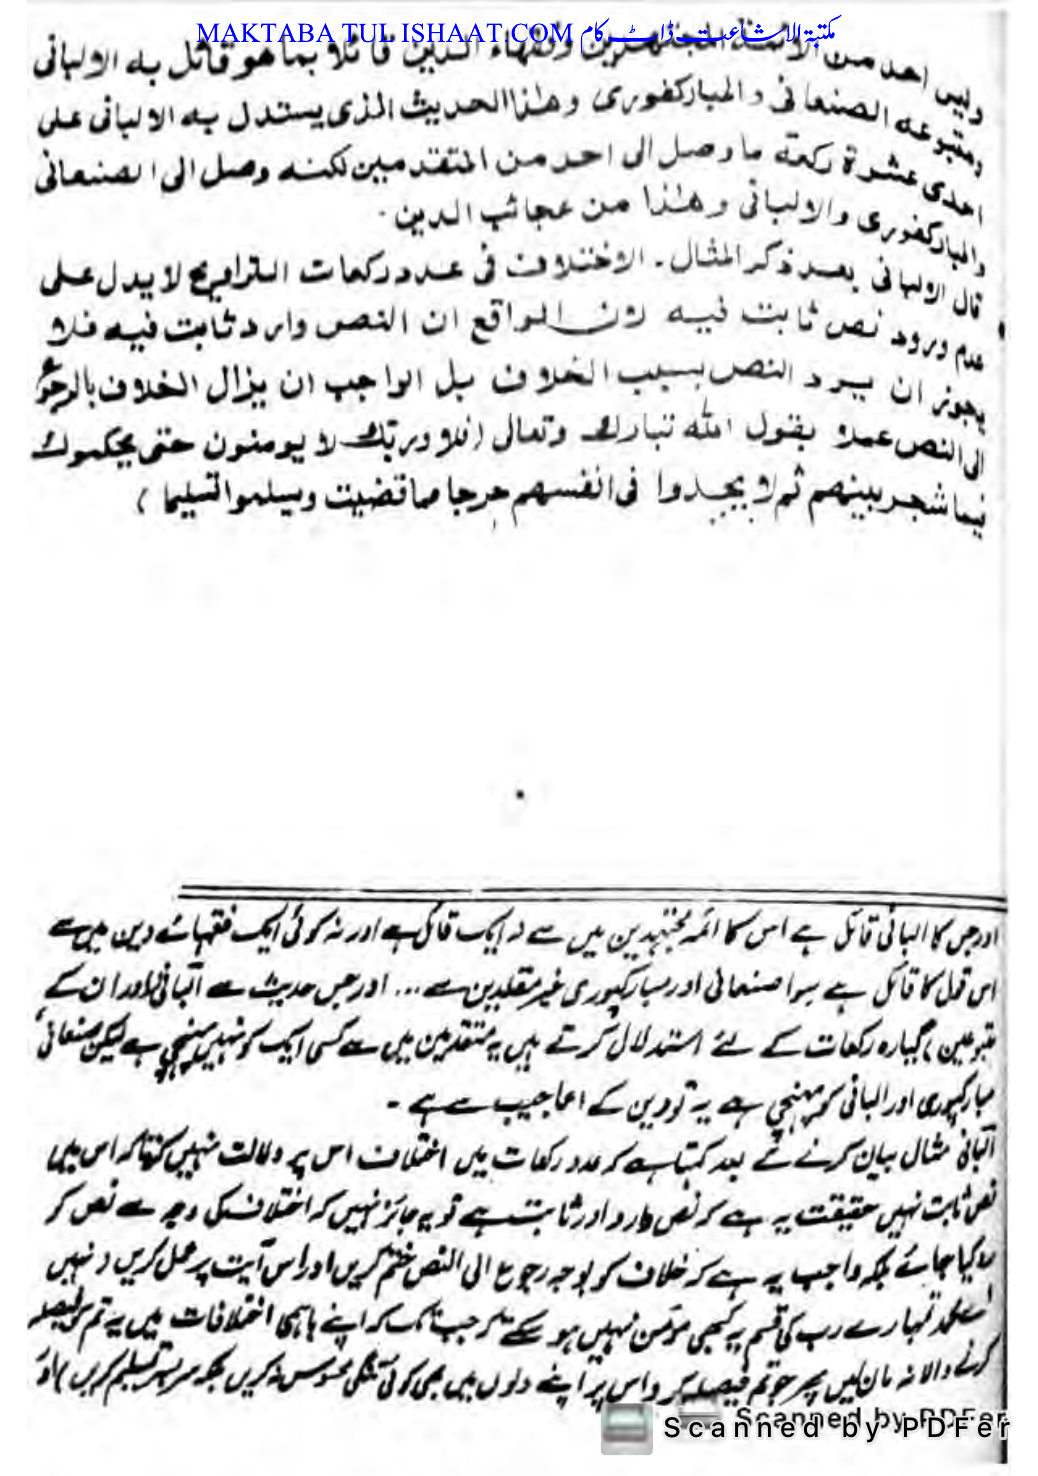 MAKTABA TUL ISHAAT.COM مکتبۃ الاشاعت ڈاٹ کام
وليس احد من الائمة المجتهدين وفقهاء الدين قائلا بما هو قائل به الالبانی
ومتبوعه الصنعانی والمبارکفوری وهذا الحدیث الذی یستدل به الالبانی علی
احدی عشرة رکعة ما وصل الی احد من المتقدمین لکنه وصل الی الصنعانی
والمبارکفوری والالبانی وهذا من عجائب الدین۔
قال الالبانی بعد ذکر المثال۔ الاختلاف فی عدد رکعات التراویح لا یدل علی
عدم ورود نص ثابت فیه لان الواقع ان النص وارد ثابت فیه فلا
یجوز ان یرد النص بسبب الخلاف بل الواجب ان یزال الخلاف بالرجوع
الی النص عملا بقول الله تبارك وتعالی (فلا وربك لا یومنون حتی یحکموك
فیما شجر بینهم ثم لا یجدوا فی انفسهم حرجا مما قضیت ویسلموا تسلیما)
اور جس کا البانی قائل ہے اس کا ائمہ مجتہدین میں سے نہ ایک قائل ہے اور نہ کوئی ایک فقہائے دین میں سے
اس قول کا قائل ہے سوا صنعانی اور مبارکپوری غیر مقلدین سے... اور جس حدیث سے البانی اور ان کے
متبوعین گیارہ رکعات کے لئے استدلال کرتے ہیں یہ متقدمین میں سے کسی ایک کو نہیں پہنچی ہے لیکن صنعانی
مبارکپوری اور البانی کو پہنچی ہے یہ تو دین کے اعاجیب سے ہے۔
البانی مثال بیان کرنے کے بعد کہتا ہے کہ عدد رکعات میں اختلاف اس پر دلالت نہیں کرتا کہ اس میں
نص ثابت نہیں حقیقت یہ ہے کہ نص وارد اور ثابت ہے تو یہ جائز نہیں کہ اختلاف کی وجہ سے نص کو
رد کیا جائے بلکہ واجب یہ ہے کہ خلاف کو بوجہ رجوع الی النص ختم کریں اور اس آیت پر عمل کریں (نہیں
اے محمد تمہارے رب کی قسم یہ کبھی مؤمن نہیں ہو سکتے جب تک کہ اپنے باہمی اختلافات میں یہ تم کو فیصلہ
کرنے والا نہ مان لیں پھر جو تم فیصلہ کرو اس پر اپنے دلوں میں بھی کوئی تنگی محسوس نہ کریں بلکہ سر بسر تسلیم کریں)
Scanned by PDFer
Scanned by PDFer